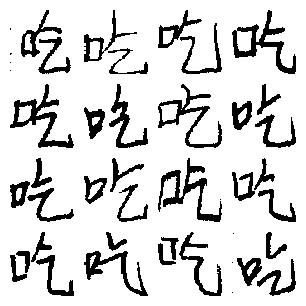 吃吃吃吃
吃吃吃吃
吃吃吃吃
吃吃吃吃